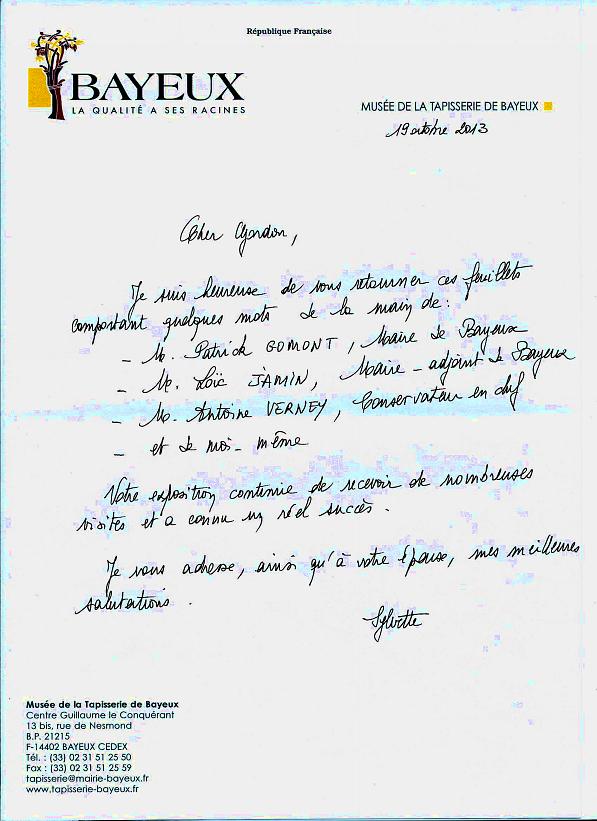 République Française
BAYEUX
LA QUALITÉ A SES RACINES
MUSÉE DE LA TAPISSERIE DE BAYEUX
19 octobre 2013
Cher Gordon,
Je suis heureuse de vous retourner ces feuillets
comportant quelques mots de la main de :
- M. Patrick GOMONT, Maire de Bayeux
- M. Loïc JAMIN, Maire-adjoint de Bayeux
- M. Antoine VERNEY, Conservateur en chef
- et de moi-même
Votre exposition continue de recevoir de nombreuses
visites et a connu un réel succès.
Je vous adresse, ainsi qu'à votre épouse, mes meilleures
salutations.
Sylvette
Musée de la Tapisserie de Bayeux
Centre Guillaume le Conquérant
13 bis, rue de Nesmond
B.P. 21215
F-14402 BAYEUX CEDEX
Tél. : (33) 02 31 51 25 50
Fax : (33) 02 31 51 25 59
tapisserie@mairie-bayeux.fr
www.tapisserie-bayeux.fr